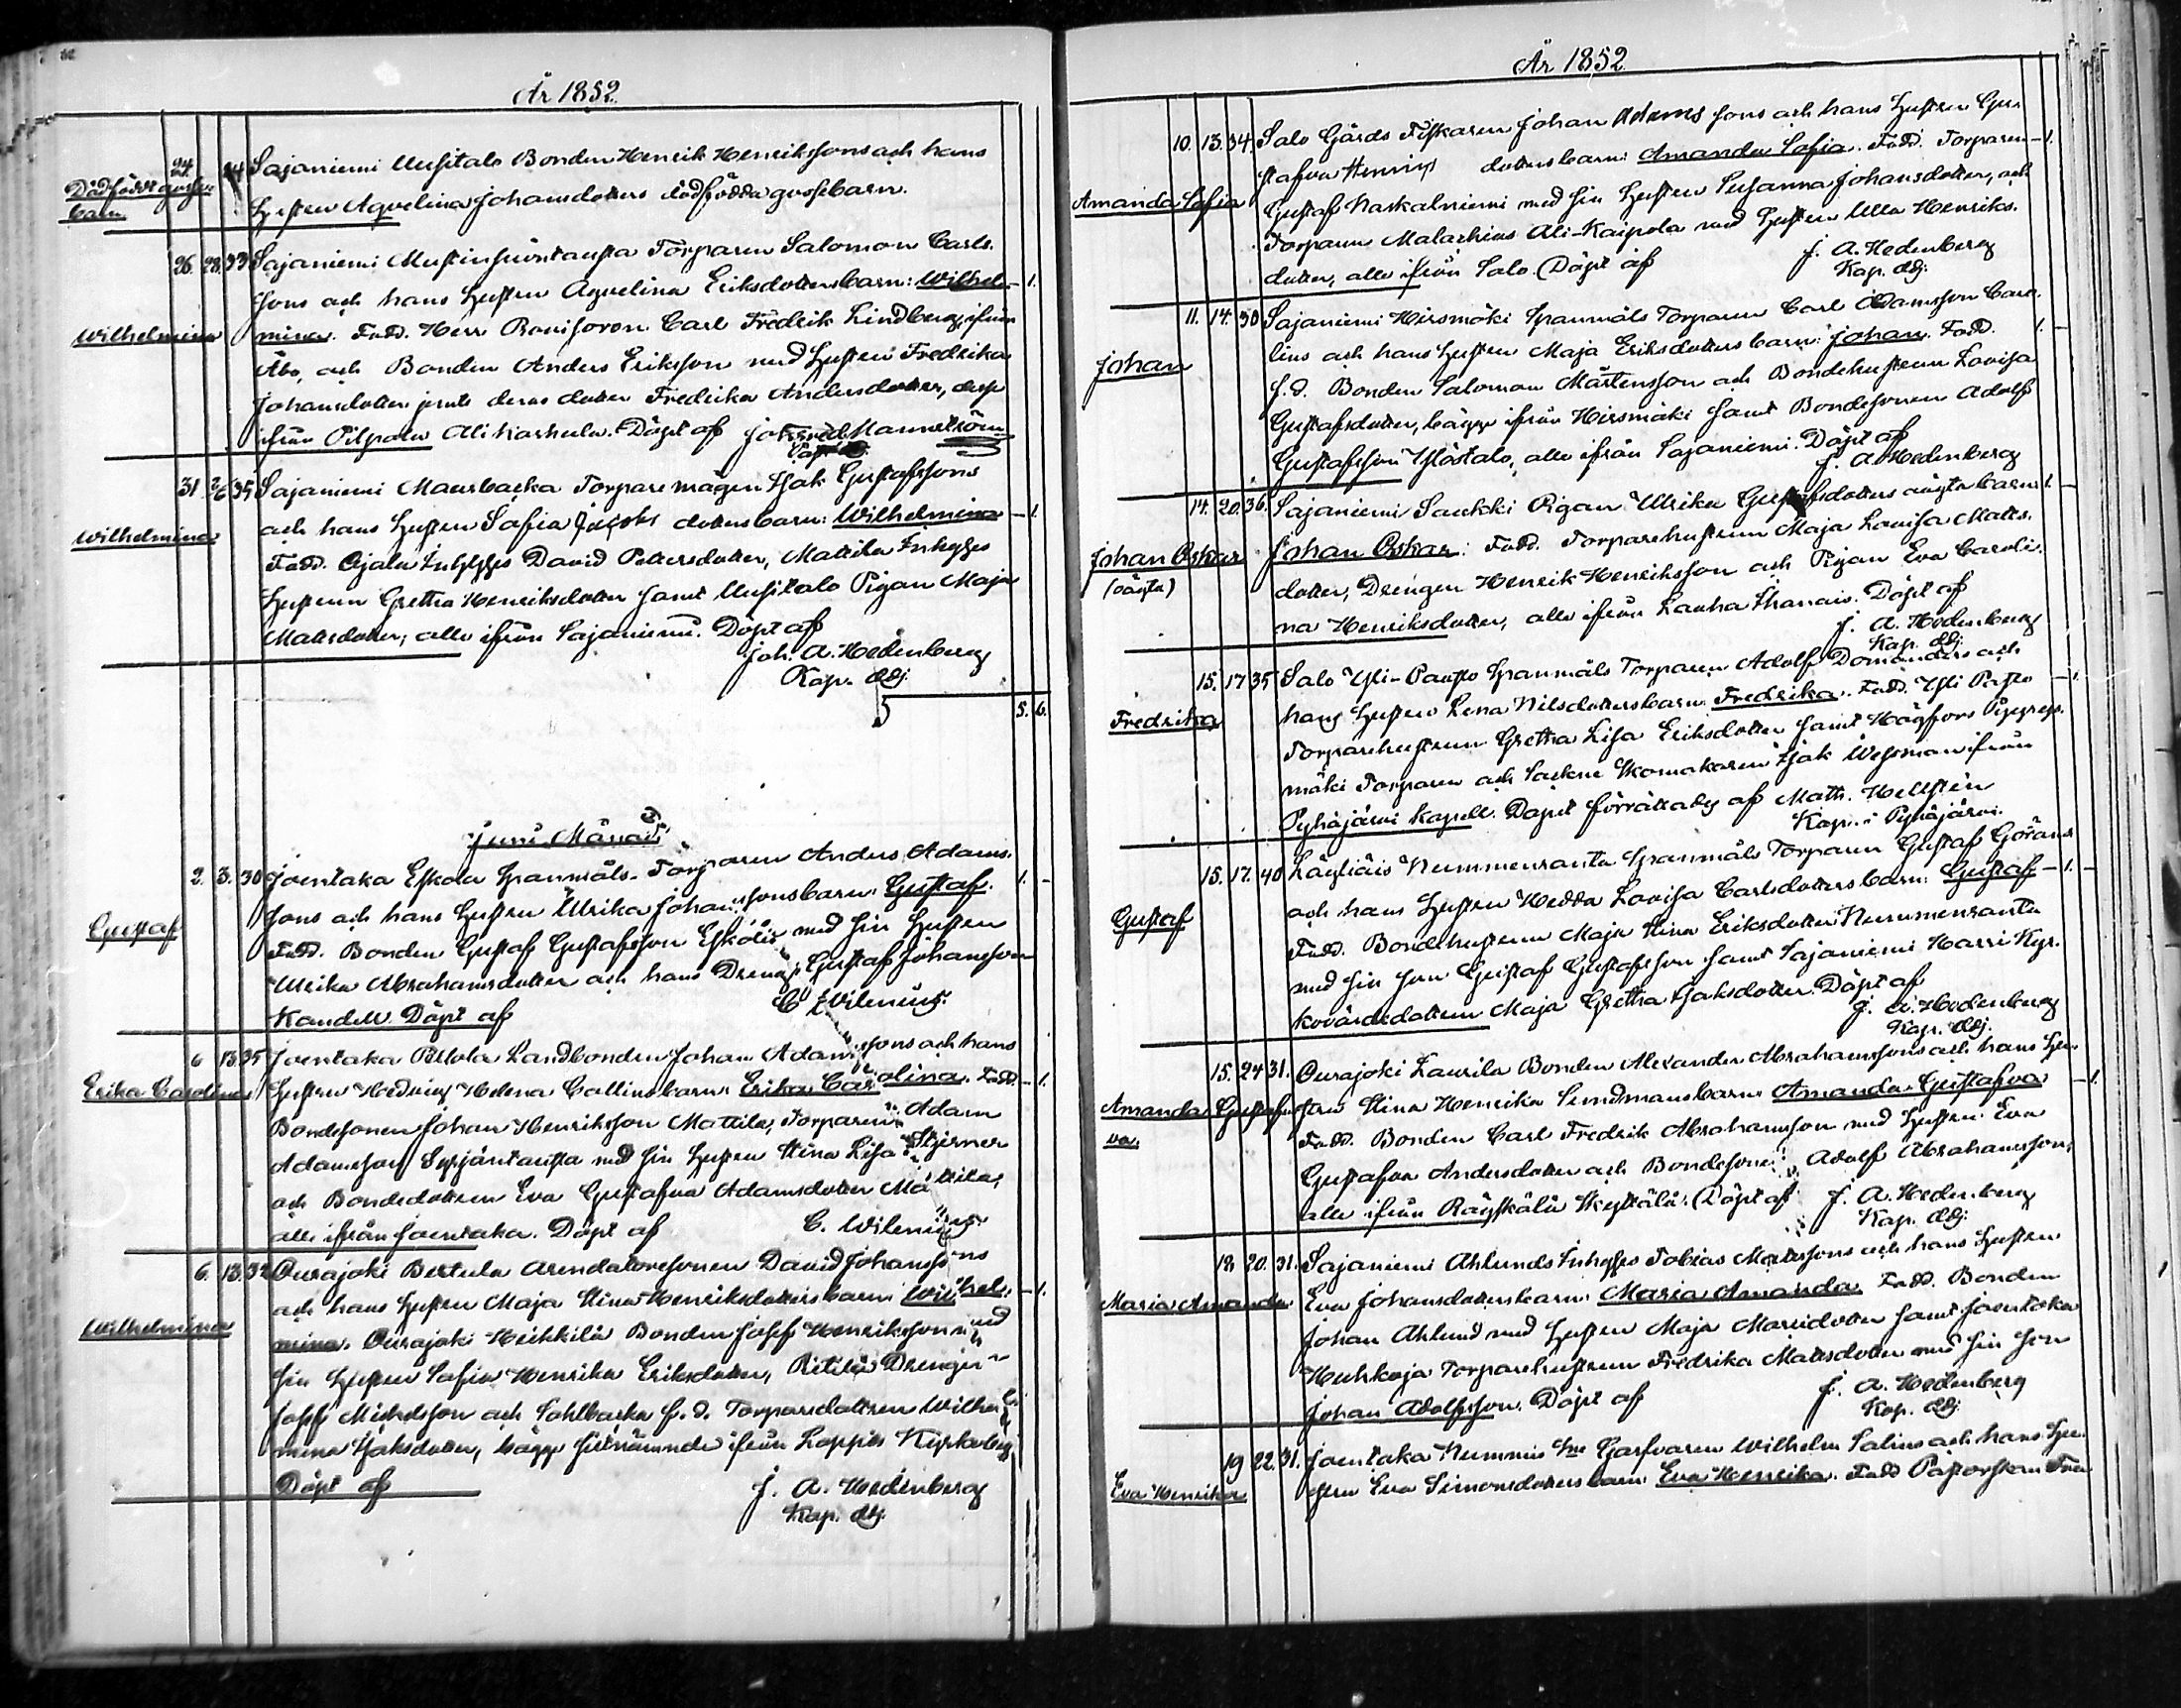 År 1852.
24. 24 Sajaniemi Uusitalo Bonden Henrik Henrikssons och hans
Dödfödt gosse
barn
Hustru Aqvelina Johansdotters dödfödda gossebarn.
26. 28. 33 Sajaniemi Torparen Salomon Carls
sons och hans Hustru Aqvelina Eriksdotters barn: Wilhel- 1.
Wilhelmina mina. Fadd. Herr Carl Fredrik Lindberg ifrån
Åbo, och Bonden Anders Eriksson med Hustru Fredrika
Johansdotter jemte deras dotter Fredrika Andersdotter, desse
ifrån Pilpala Alikarhula. Döpt af
31 2/6 35 Sajaniemi Maursbacka Torpare mågen Isak Gustafssons
och hans Hustru Safia Jacobs dotters barn: Wilhelmina - 1.
Wilhelmina
Fadd. Ojala Inhyses David Pettersdotter, Mattila Inhyses
Hustrun Gretha Henriksdotter samt Uusitalo Pigan Maja
Mattsdotter, alla ifrån Sajaniemi. Döpt af
Joh. A. Hedenberg
Kap. Adj.
5 5. 6.
Juni Månad
2. 3. 30 Joentaka Eskola Spanmåls-Torparen Anders Adams.
sons och hans Hustru Ulrika Johanssons barn: Gustaf. 1. -
Gustaf
Fadd. Bonden Gustaf Gustafsson Eskola med sin Hustru
Ulrika Abrahamsdotter och hans Dreng Gustaf Johansson
Kandell. Döpt af C. Wilenius.
6 13 35 Joentaka Landbonden Johan Adamssons och hans
Erika Carolina Hustru Hedvig Helena Callins barn: Erika Carolina. Fadd. - 1.
Bondesonen Johan Henriksson Mattila, Torparen Adam
Adamsson Syrjäntausta med sin Hustru Stina Lisa Stjerner
och Bondedottren Eva Gustafva Adamsdotter Mattila,
alla ifrån Joentaka. Döpt af C. Wilenius
6. 13. 32 Ourajoki Bertula Arendatorssonen David Johanssons
och hans Hustru Maja Stina Henriksdotters barn: Wilhel- - 1.
Wilhelmina
mina. Ourajoki Heikkilä Bonden Josef Henriksson med
sin Hustru Safia Henrika Eriksdotter, Pietilä Drengen
Josef Michelsson och Sahlbacka f. d. Torparedottren Wilhel
mina Isaksdotter, bägge sistnämnde ifrån Loppis Kyrkoby
Döpt af J. A. Hedenberg
Kap. Adj.
År 1852
10. 13. 34. Salo Gårds Fiskaren Johan Adams sons och hans Hustru Gu-
stafva dotters barn: Amanda Sofia. Fadd. Torparen - 1.
Amanda Sofia Gustaf Naskalniemi med sin Hustru Susanna Johansdotter, och
Torparen Malachias Ali-Kaipola med Hustru Ulla Henriks.
dotter, alla ifrån Salo. Döpt af J. A. Hedenberg
Kap. Adj.
11. 14. 30 Sajaniemi Hirsmäki Spanmåls Torparen Carl Adamsson Caro
lins och hans Hustru Maja Eriksdotters barn: Johan. Fadd. 1. -
Johan
f. d. Bonden Salomon Mårtensson och Bondehustrun Lovisa
Gustafsdotter, bägge ifrån Hirsmäki samt Bondesonen Adolf
Gustafsson Ylöstalo, alla ifrån Sajaniemi. Döpt af
J. A. Hedenberg
14. 20. 36. Sajaniemi Saukki Pigan Ulrika Gustafsdotters oägta barn: 1. -
Johan Oskar
(oägta)
Johan Oskar: Fadd. Torparehustrun Maja Lovisa Matts.
dotter, Drengen Henrik Henriksson och Pigan Eva Caroli-
na Henriksdotter, alla ifrån Lauha Thanais. Döpt af
J. A. Hedenberg
Kap. Adj.
15. 17 35 Salo Yli-Paupo Spanmåls Torparen Adolf Domanders och
hans Hustru Lena Nilsdotters barn: Fredrika. Fadd. Yli Papo - 1.
Fredrika
Torparehustrun Gretha Lisa Eriksdotter samt Högfors
mäki Torparen och Sockne Skomakaren Isak Wessman ifrån
Pyhäjärvi Kapell. Dopet förrättades af Math. Hellstén
Kap. i Pyhäjärvi.
15. 17. 40 Läyliäis Nummenranta Spanmåls Torparen Gustaf Görans
och hans Hustru Hedda Lovisa Carlsdotters barn: Gustaf - 1. -
Gustaf
Fadd. Bondehustrun Maja Stina Eriksdotter Nummenranta
med sin son Gustaf Gustafsson samt Sajaniemi Harri Kyr-
kovärdedottren Maja Gretha Isaksdotter. Döpt af
J. A. Hedenberg
Kap. Adj.
15. 24 31. Ourajoki Laurila Bonden Alexander Abrahamssons och hans Hu-
Amanda Gustaf
va.
stru Stina Henrika Sundmans barn: Amanda Gustafva - 1.
Fadd. Bonden Carl Fredrik Abrahamsson med Hustru Eva
Gustafva Andersdotter och Bondesonen Adolf Abrahamsson,
alla ifrån Räyskälä Kyttälä. Döpt af J. A. Hedenberg
Kap. Adj.
18 20. 31. Sajaniemi Ahlunds Inhyses Tobias Mattssons och hans Hustru
Maria Amanda Eva Johansdotters barn: Maria Amanda. Fadd. Bonden
Johan Ahlund med Hustru Maja dotter samt Joentaka
Huhkoja Torparehustrun Fredrika Mattsdotter med sin son
Johan Adolfsson. Döpt af J. A. Hedenberg
Kap. Adj.
19 22. 31. Joentaka Nummis Garfvaren Wilhelm Salins och hans Hu-
Eva Henrika stru Eva Simonsdotters barn: Eva Henrika. Fadd Pastorskan